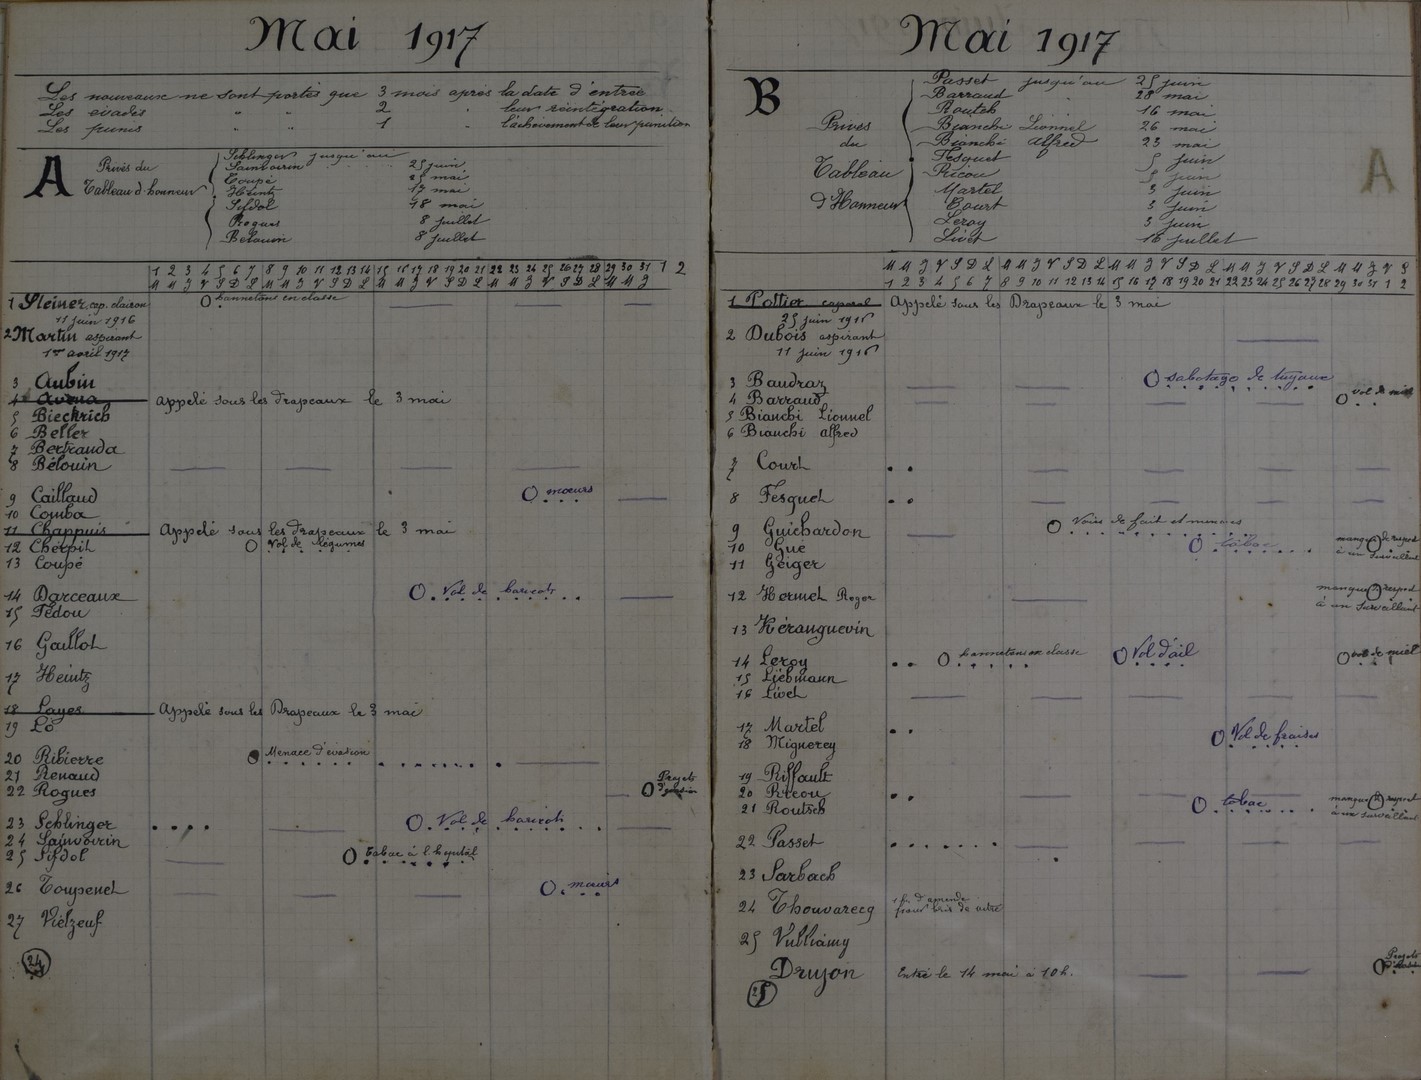 Mai 1917
Les nouveaux ne sont portés que 3 mois après la date d'entrée
Les évadés " " 2 " leur réintégration
Les punis " " 1 " l'achèvement de leur punition
A
Privés du
Tableau d'honneur
Schlinger jusqu'au 25 juin
Sainvoirin 25 mai
Coupé 17 mai
Heintz 18 mai
Sifdol
Rogues 8 juillet
Bélouin 8 juillet
1 2 3 4 5 6 7 8 9 10 11 12 13 14 15 16 17 18 19 20 21 22 23 24 25 26 27 28 29 30 31 1 2
M M J V S D L M M J V S D L M M J V S D L M M J V S D L M M J
1 Steiner cap. clairon hannetons en classe
11 juin 1916
2 Martin aspirant
1er avril 1917
3 Aubin
4 Appelé sous les Drapeaux le 3 mai
5 Bieckrich
6 Beller
7 Bertrauda
8 Bélouin
9 Caillaud mœurs
10 Comba
11 Chappuis Appelé sous les Drapeaux le 3 mai
12 Cherpit Vol de légumes
13 Coupé
14 Darceaux Vol de haricots
15 Fédou
16 Gaillot
17 Heintz
18 Layes Appelé sous les Drapeaux le 3 mai
19 Lô
20 Ribierre Menace d'évasion
21 Renaud
22 Rogues Projets d'évasion
23 Schlinger Vol de haricots
24 Sainvoirin
25 Sifdol tabac à l'hôpital
26 Toupenet mœurs
27 Vielzeuf
24
Mai 1917
B
Privés
du
Tableau
d'Honneur
Passet jusqu'au 25 juin
Barraud " 28 mai
Routch 16 mai
Bianchi Lionnel 26 mai
Bianchi Alfred 23 mai
Fesquet 5 juin
Ricou 5 juin
Martel 3 juin
Court 3 juin
Leroy 3 juin
Livet 16 juillet
A
M M J V S D L M M J V S D L M M J V S D L M M J V S D L M M J V S
1 2 3 4 5 6 7 8 9 10 11 12 13 14 15 16 17 18 19 20 21 22 23 24 25 26 27 28 29 30 31 1 2
1 Pottier caporal Appelé sous les Drapeaux le 3 mai
25 juin 1916
2 Dubois aspirant
11 juin 1916
3 Baudraz sabotage de tuyaux
4 Barraud vol de miel
5 Bianchi Lionnel
6 Bianchi alfred
7 Court
8 Fesquet
9 Guichardon Voies de fait et menaces
10 Gue tabac manque de respect
à un surveillant
11 Geiger
12 Hermet Roger manque de respect
à un surveillant
13 Kéranguevin
14 Leroy hannetons en classe Vol d'ail vol de miel
15 Liebmann
16 Livet
17 Martel Vol de fraises
18 Mignerey
19 Riffault
20 Ricou
21 Routsch tabac manque de respect
à un surveillant
22 Passet
23 Sarbach
24 Thouvarecq
25 Vulliamy
Drujon Entré le 14 mai à 10h. Projets d'évasion
25